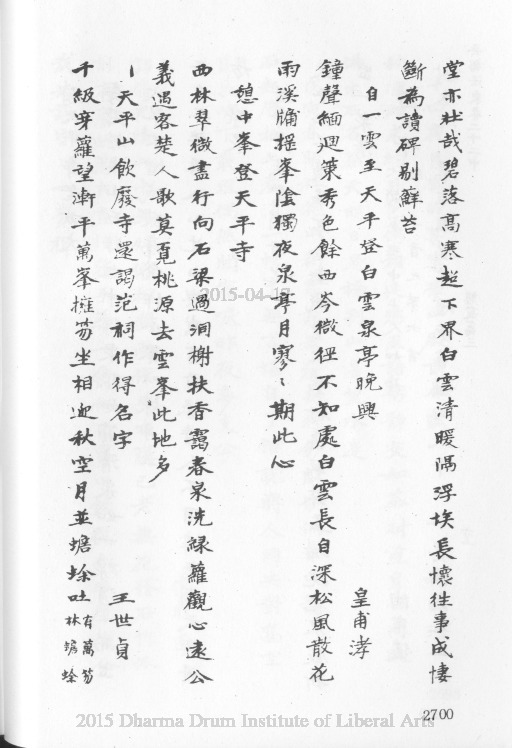 堂亦壯哉碧落高寒超下界白雲清暖隔浮埃長懷往事成悽
斷為讀碑剔蘚苔
自一雲至天平登白雲泉亭晚興 皇甫涍
鐘聲緬迴策秀色餘西岑微徑不知處白雲長自深松風散花
雨溪牖搖峯陰獨夜泉亭月寥〻期此心
憩中峯登天平寺
西林翠微盡行向石梁過洞榭扶香靄春泉洗綠蘿觀心遠公
義過客楚人歌莫覓桃源去雲峯此地多
天平山飲廢寺還謁范祠作得名字 王世貞
千級穿蘿望漸平萬峯擁笏坐相迎秋空月並蟾蜍吐有萬笏林蟾蜍
2015-04-17
2700
2015 Dharma Drum Institute of Liberal Arts